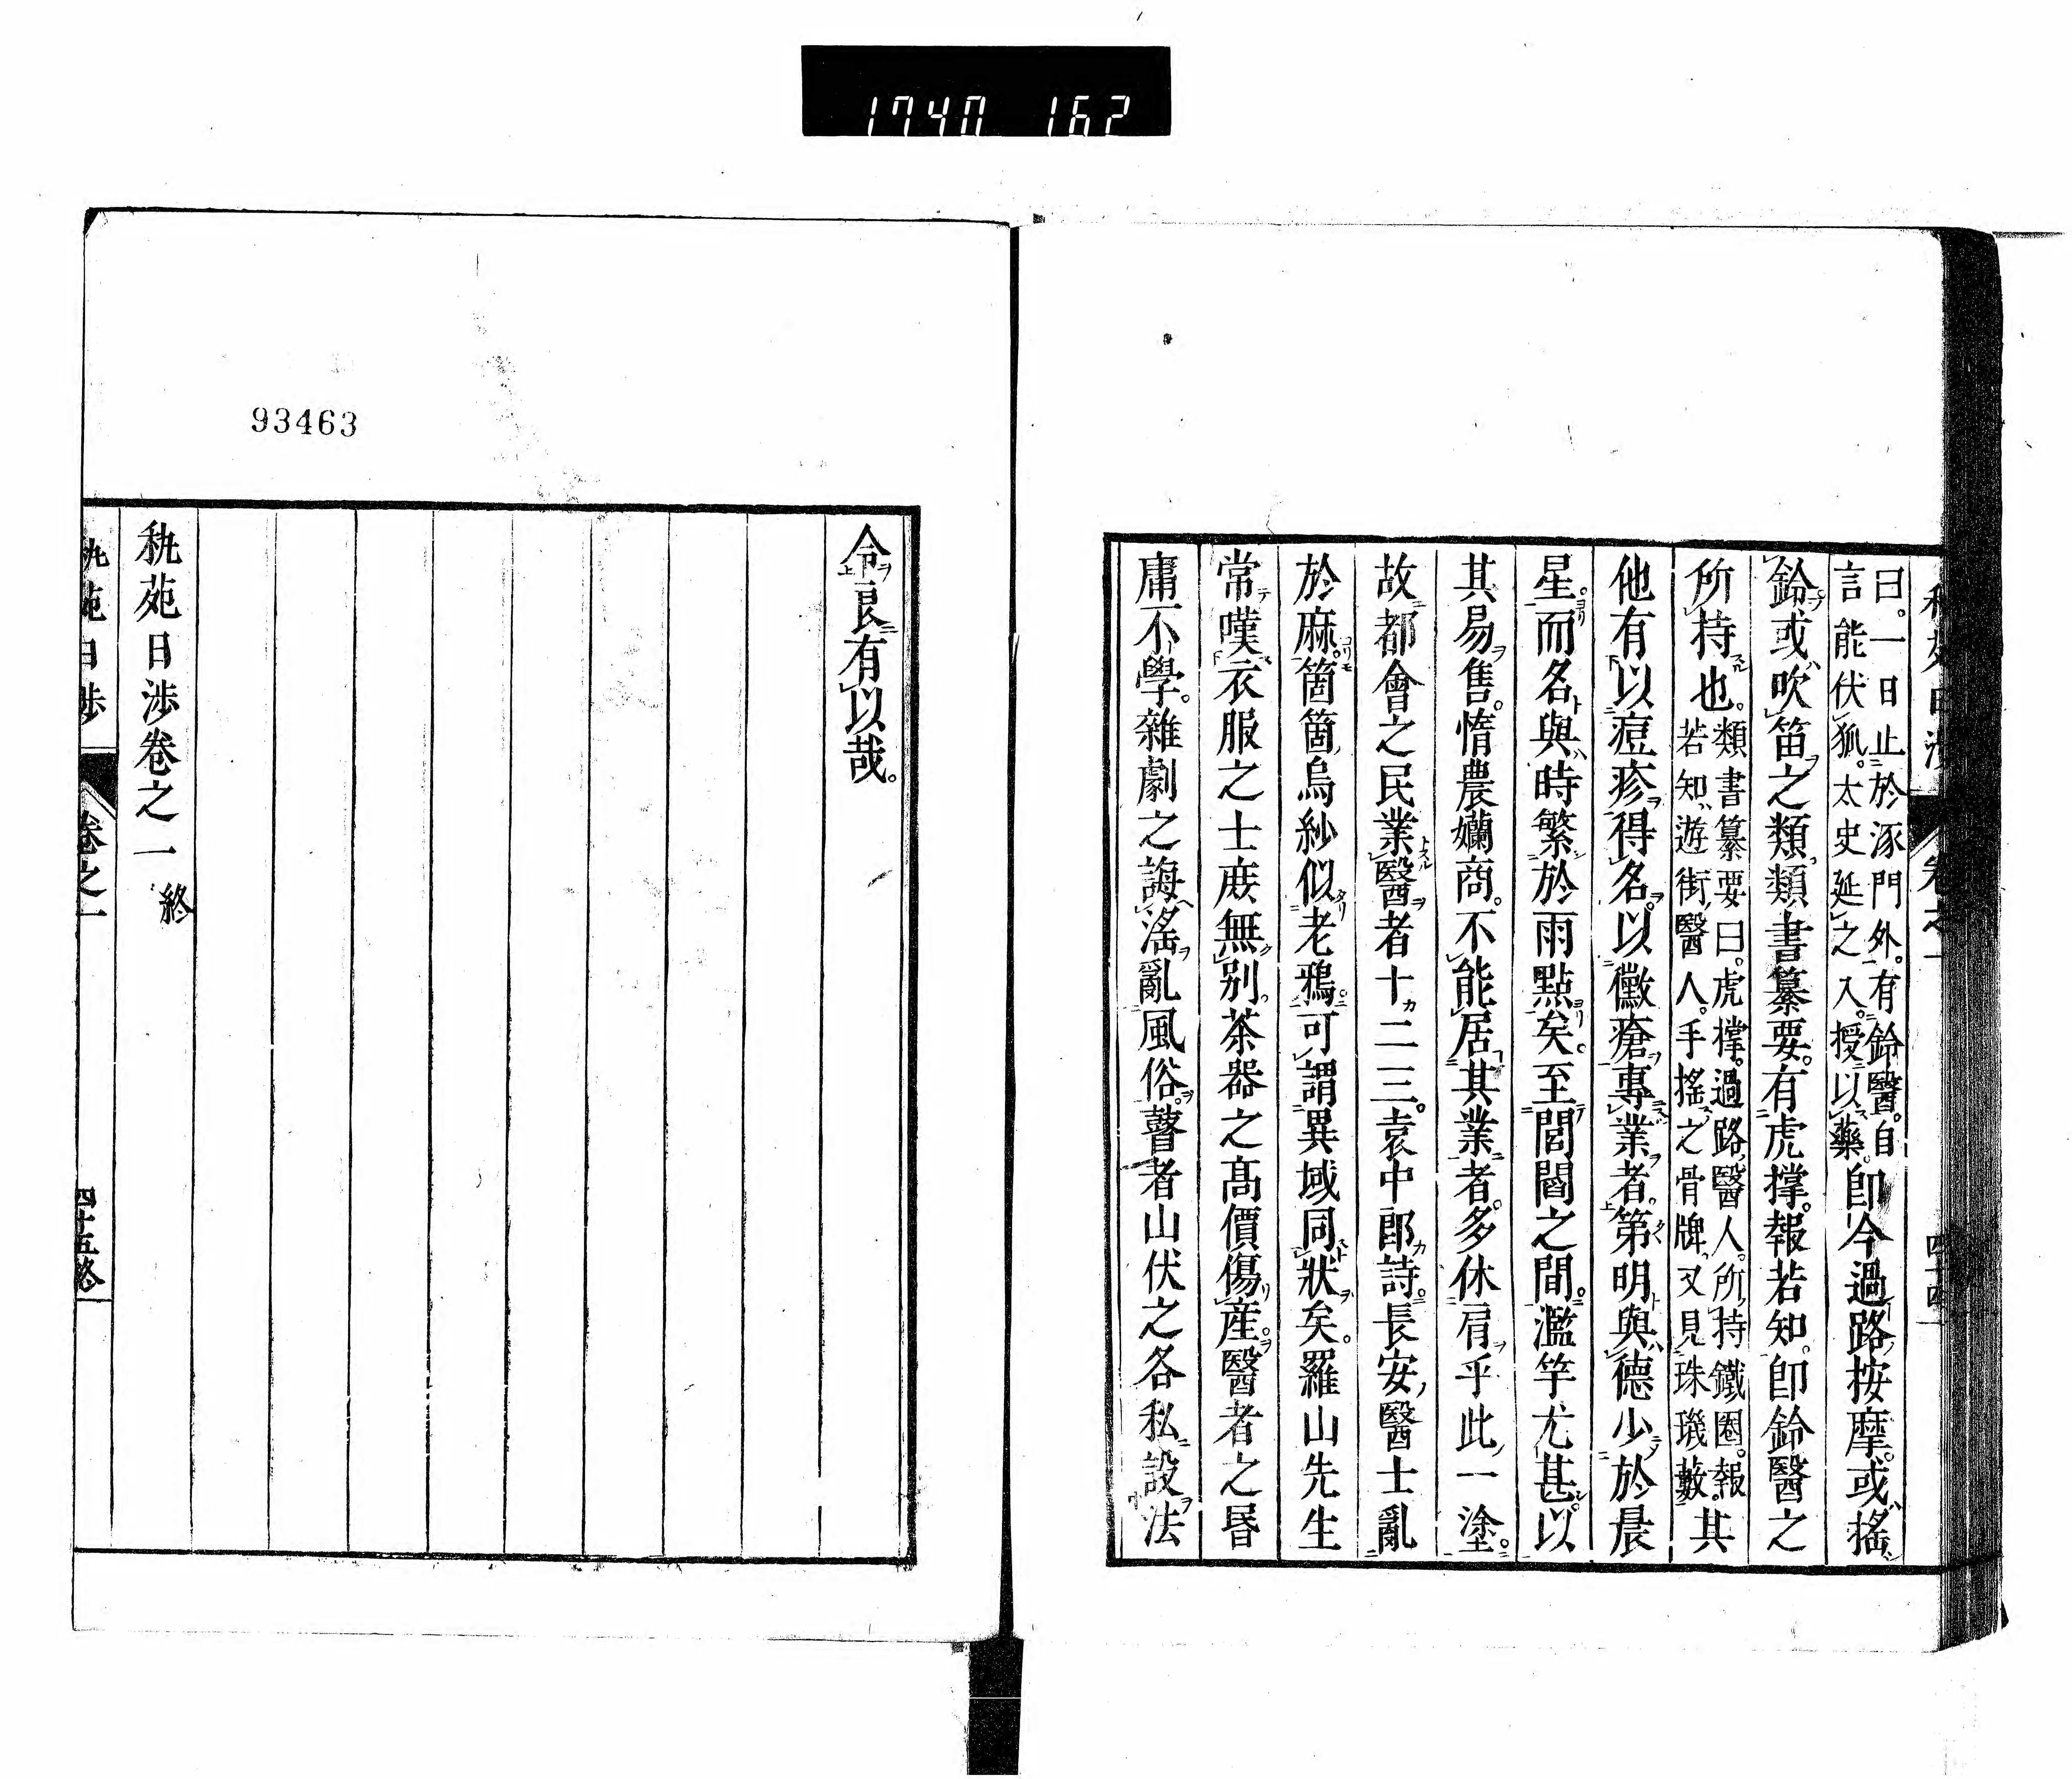 1740 162
曰。一日止於涿門外。有鈴醫。自
言能伏狐。太史延之入。授以藥。即今過路按摩。或搖
鈴或吹笛之類。類書纂要。有虎撑。報若知。即鈴醫之
所持也。類書纂要曰。虎撑。過路醫人。所持鐵圈。報
若知、遊街醫人。手搖之骨牌、又見珠璣藪。其
他有以痘疹得名。以黴瘡專業者。第明與德少於晨
星。而名與時繁於雨點矣。至閭閻之間。濫竽尤甚。以
其易售。惰農嬾商。不能居其業者。多休肩乎此一塗。
故都會之民業醫者十二三。袁中郎詩。長安醫士亂
於麻。箇箇烏紗似老鴉。可謂異域同狀矣。羅山先生
常嘆衣服之士庶無別。茶器之高價傷産。醫者之昬
庸不學。雜劇之誨滛亂風俗。瞽者山伏之各私設法
令良有以哉。
秇苑日渉卷之一 終
秇苑日渉 卷之一 四十五終
93463